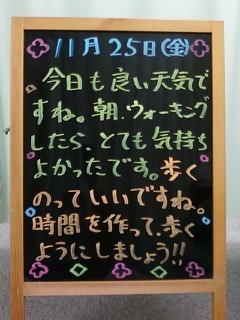 11月25日(金)
今日も良い天気で
すね。朝、ウォーキング
したら、とても気持ち
よかったです。歩く
のっていいですね。
時間を作って、歩く
ようにしましょう!!